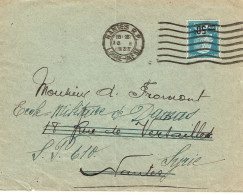 NANTES R.P.
Monsieur de Fromont
Ecole Militaire de Damas
17 Rue de Versailles
S.P. 610 Syrie
Nantes